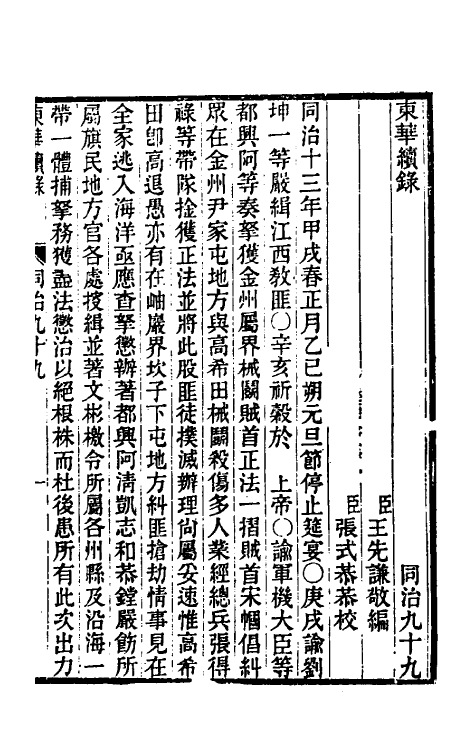 東華續錄
同治九十九
臣王先謙敬編
臣張式恭恭校
同治十三年甲戌春正月乙巳朔元旦節停止筵宴〇庚戌諭劉
坤一等嚴緝江西敎匪〇辛亥祈穀於　上帝〇諭軍機大臣等
都興阿等奏拏獲金州屬界械鬬賊首正法一摺賊首宋幗倡糾
眾在金州尹家屯地方與高希田械鬬殺傷多人業經總兵張得
祿等帶隊捦獲正法並將此股匪徒撲滅辦理尙屬妥速惟高希
田卽高退愚亦有在岫巖界坎子下屯地方糾匪搶劫情事見在
全家逃入海洋亟應查拏懲辦著都興阿淸凱志和恭鏜嚴飭所
屬旗民地方官各處搜緝並著文彬檄令所屬各州縣及沿海一
帶一體捕拏務獲盡法懲治以絕根株而杜後患所有此次出力
東華續錄
同治九十九
一